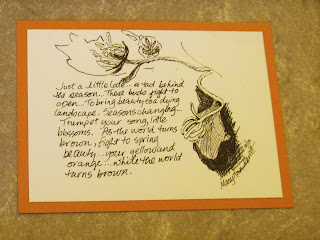 Just a little late... a tad behind
the season... These buds fight to
open... To bring beauty to a dying
landscape. Seasons changing...
Trumpet your song, little
blossoms. As the world turns
brown, fight to spring
beauty... your yellow and
orange... while the world
turns brown.